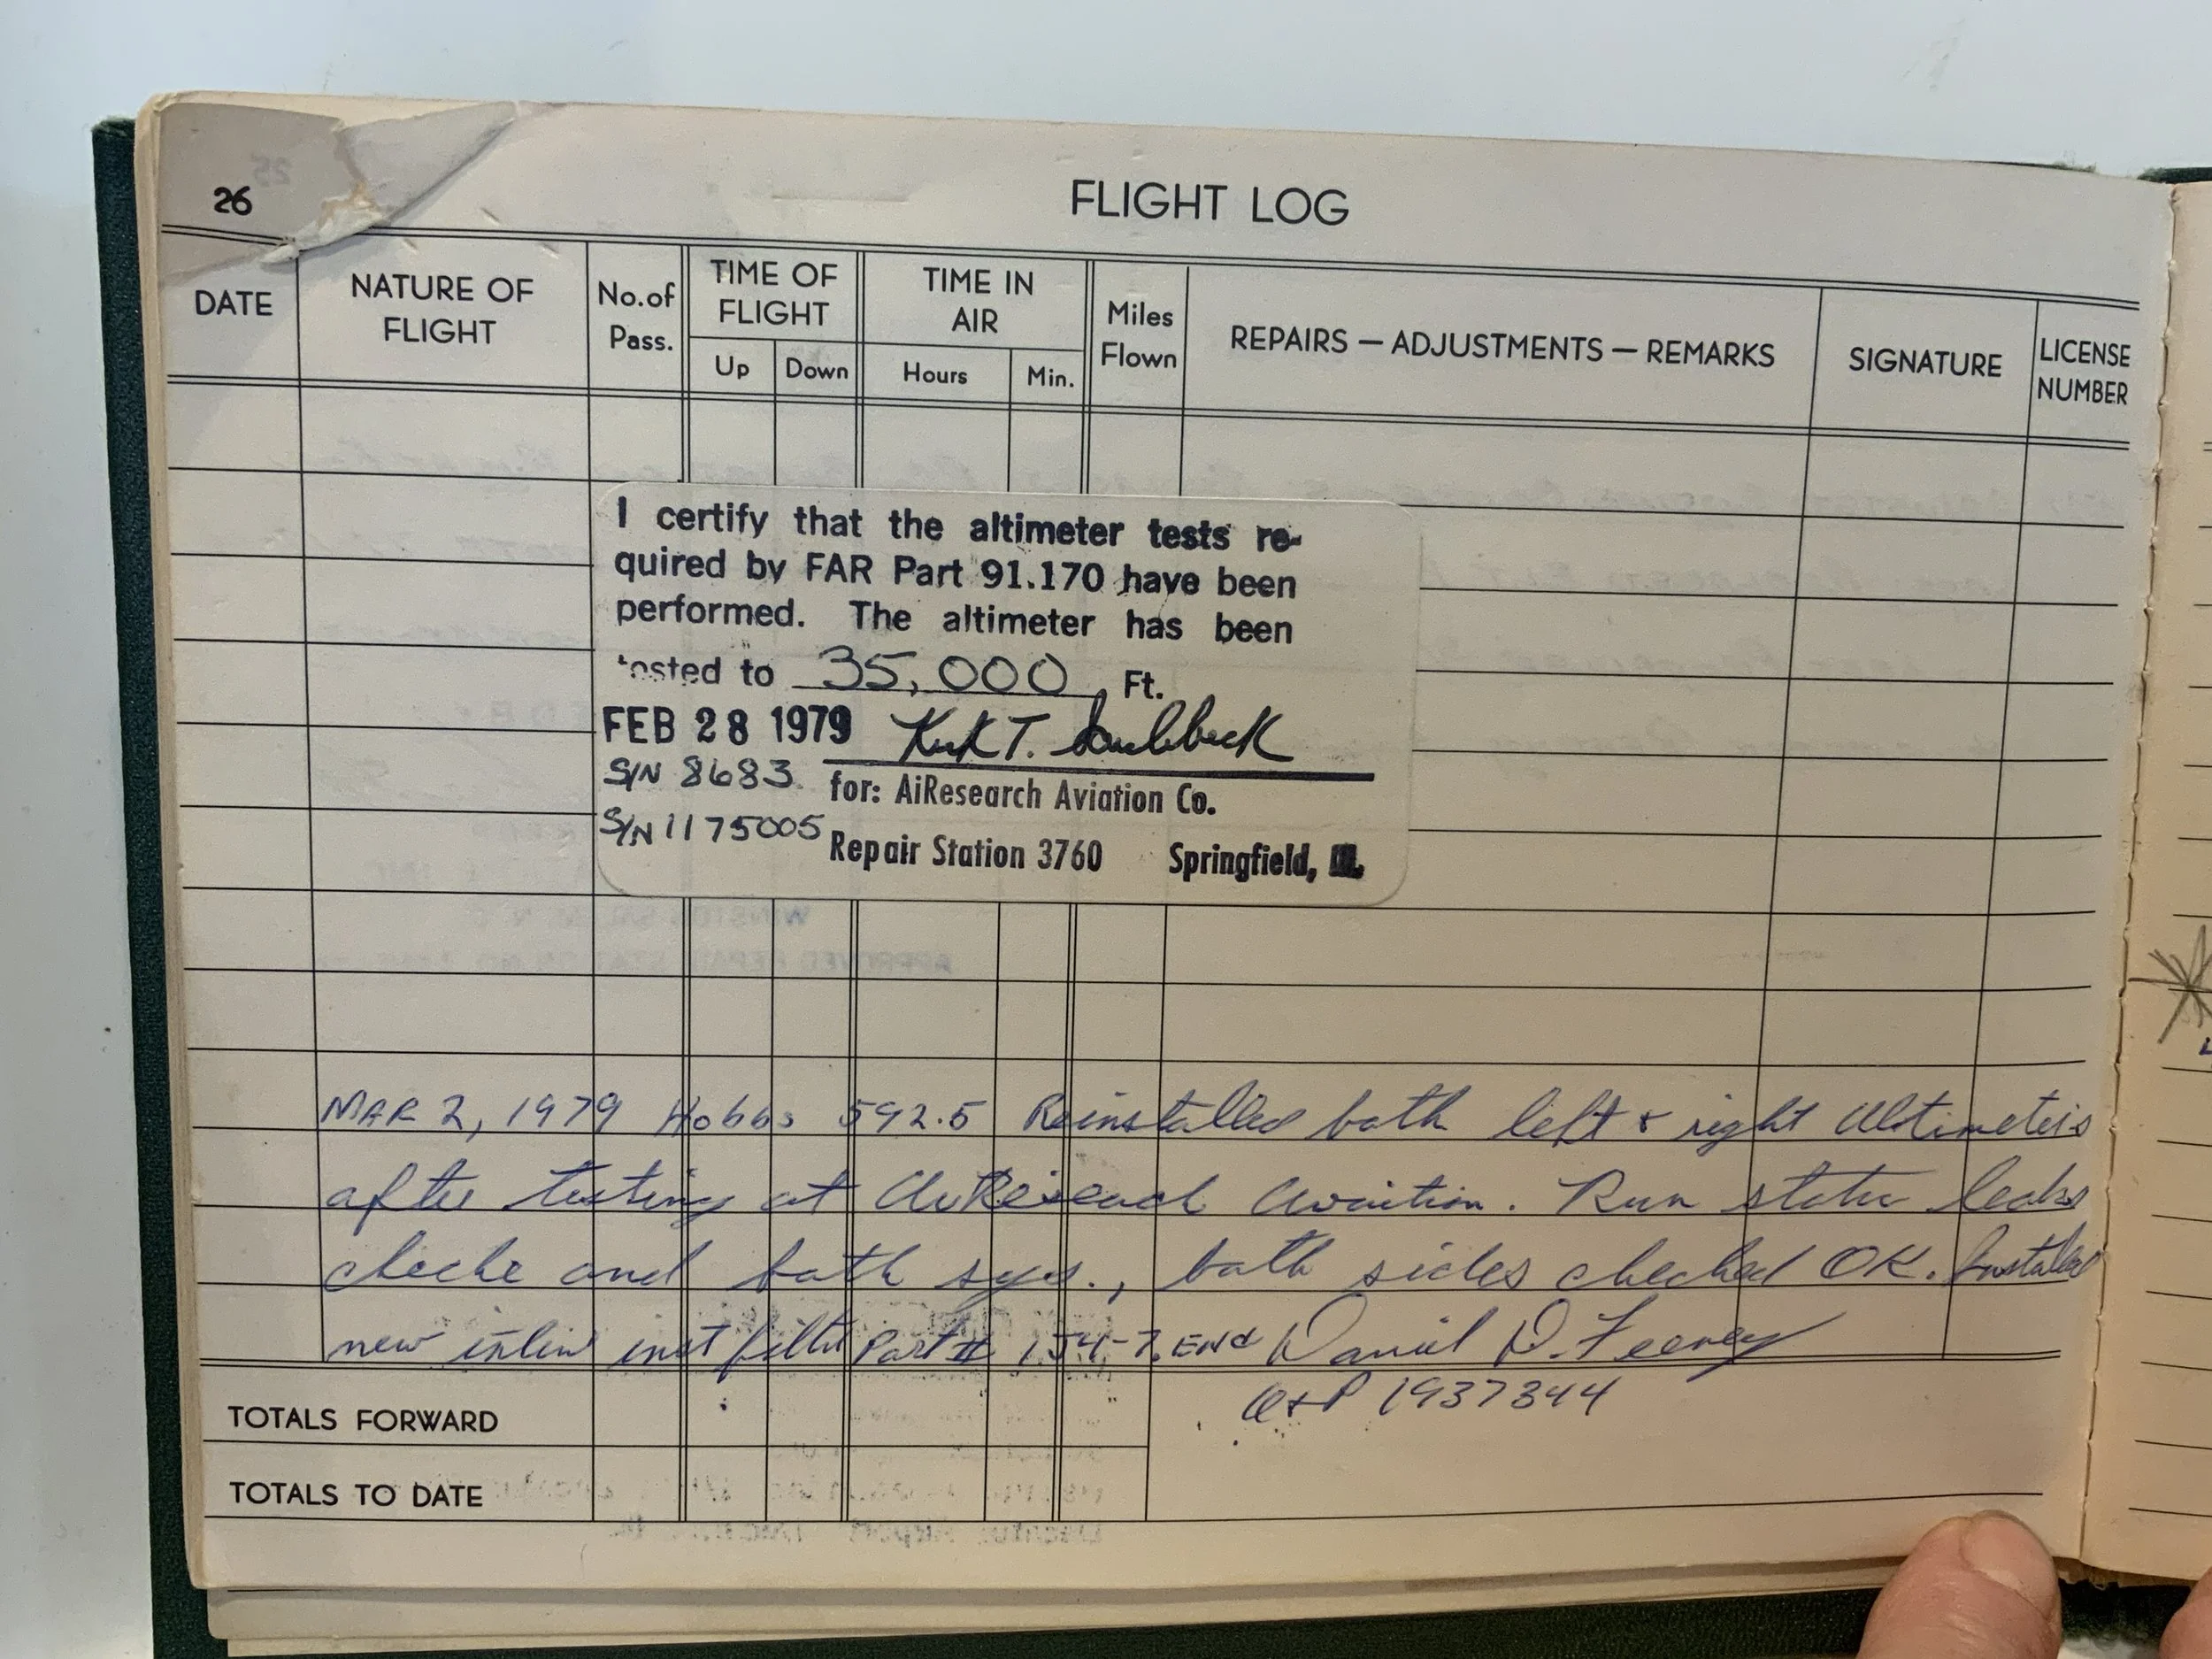 26
FLIGHT LOG
DATE
NATURE OF
FLIGHT
No.of
Pass.
TIME OF
FLIGHT
Up Down
TIME IN
AIR
Hours Min.
Miles
Flown
REPAIRS — ADJUSTMENTS — REMARKS
SIGNATURE
LICENSE
NUMBER
I certify that the altimeter tests re-
quired by FAR Part 91.170 have been
performed. The altimeter has been
tested to 35,000 Ft.
FEB 28 1979 T.
S/N 8683 for: AiResearch Aviation Co.
S/N 1175005 Repair Station 3760 Springfield, Ill.
MAR 2, 1979 Hobbs 592.5 Reinstalled both left & right Altimeters
after testing at AiResearch Aviation. Run static leaks
checke and both sys., both sides checked OK. Installed
new inline inst filter Part # 1J4-7. End Daniel D. Feeney
A+P 1937344
TOTALS FORWARD
TOTALS TO DATE